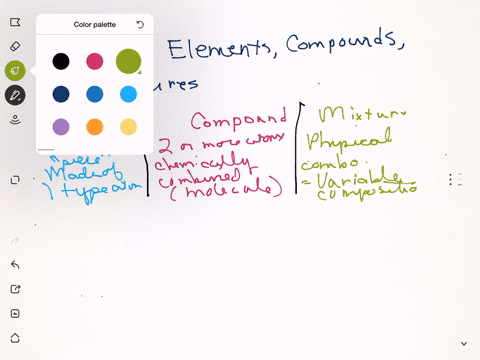 Color palette
Elements, Compounds,
ures
Compound
2 or more atoms
chemically
combined
(molecule)
Mixture
Physical
combo.
= Variable
compositio
Made of
1 type atom